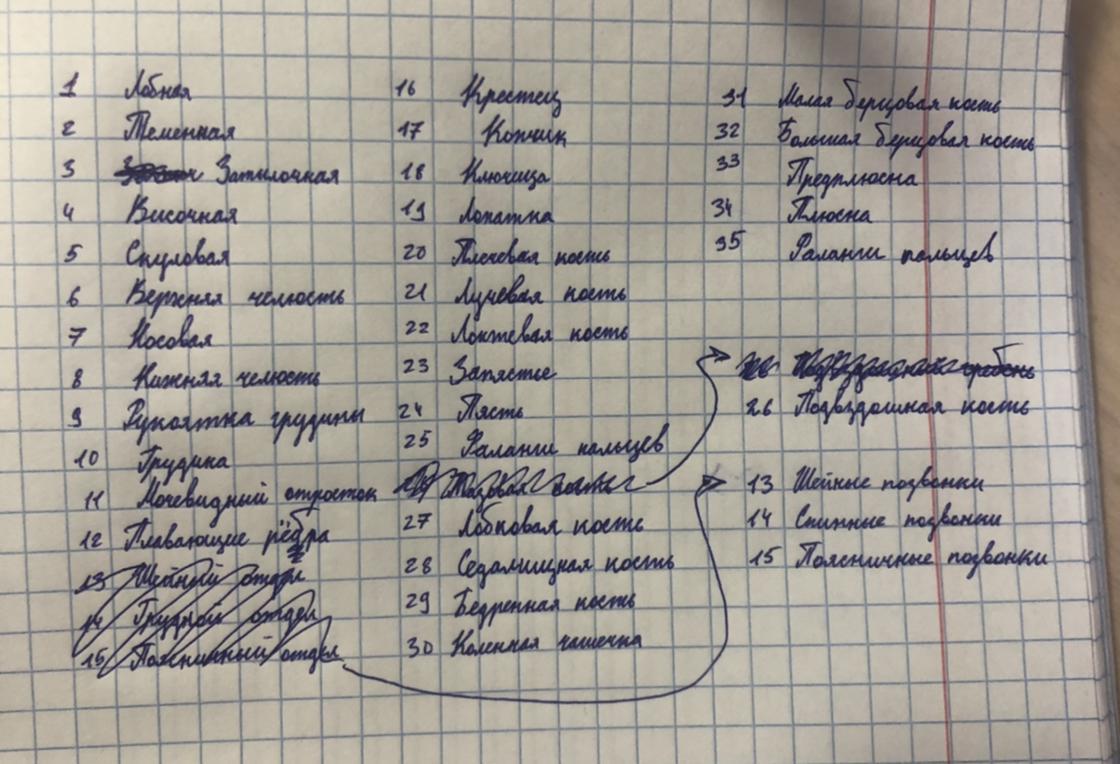 1 Лобная
2 Теменная
3 Затылочная
4 Височная
5 Скуловая
6 Верхняя челюсть
7 Носовая
8 Нижняя челюсть
9 Рукоятка грудины
10 Грудина
11 Мочевидный отросток
12 Плавающие рёбра
13 Шейный отдел
14 Грудной отдел
15 Поясничный отдел
16 Крестец
17 Копчик
18 Ключица
19 Лопатка
20 Плечевая кость
21 Лучевая кость
22 Локтевая кость
23 Запястье
24 Пясть
25 Фаланги пальцев
27 Лобковая кость
28 Седалищная кость
29 Бедренная кость
30 Коленная чашечка
31 Малая берцовая кость
32 Большая берцовая кость
33 Предплюсна
34 Плюсна
35 Фаланги пальцев
гребень
26 Подвздошная кость
13 Шейные позвонки
14 Спинные позвонки
15 Поясничные позвонки